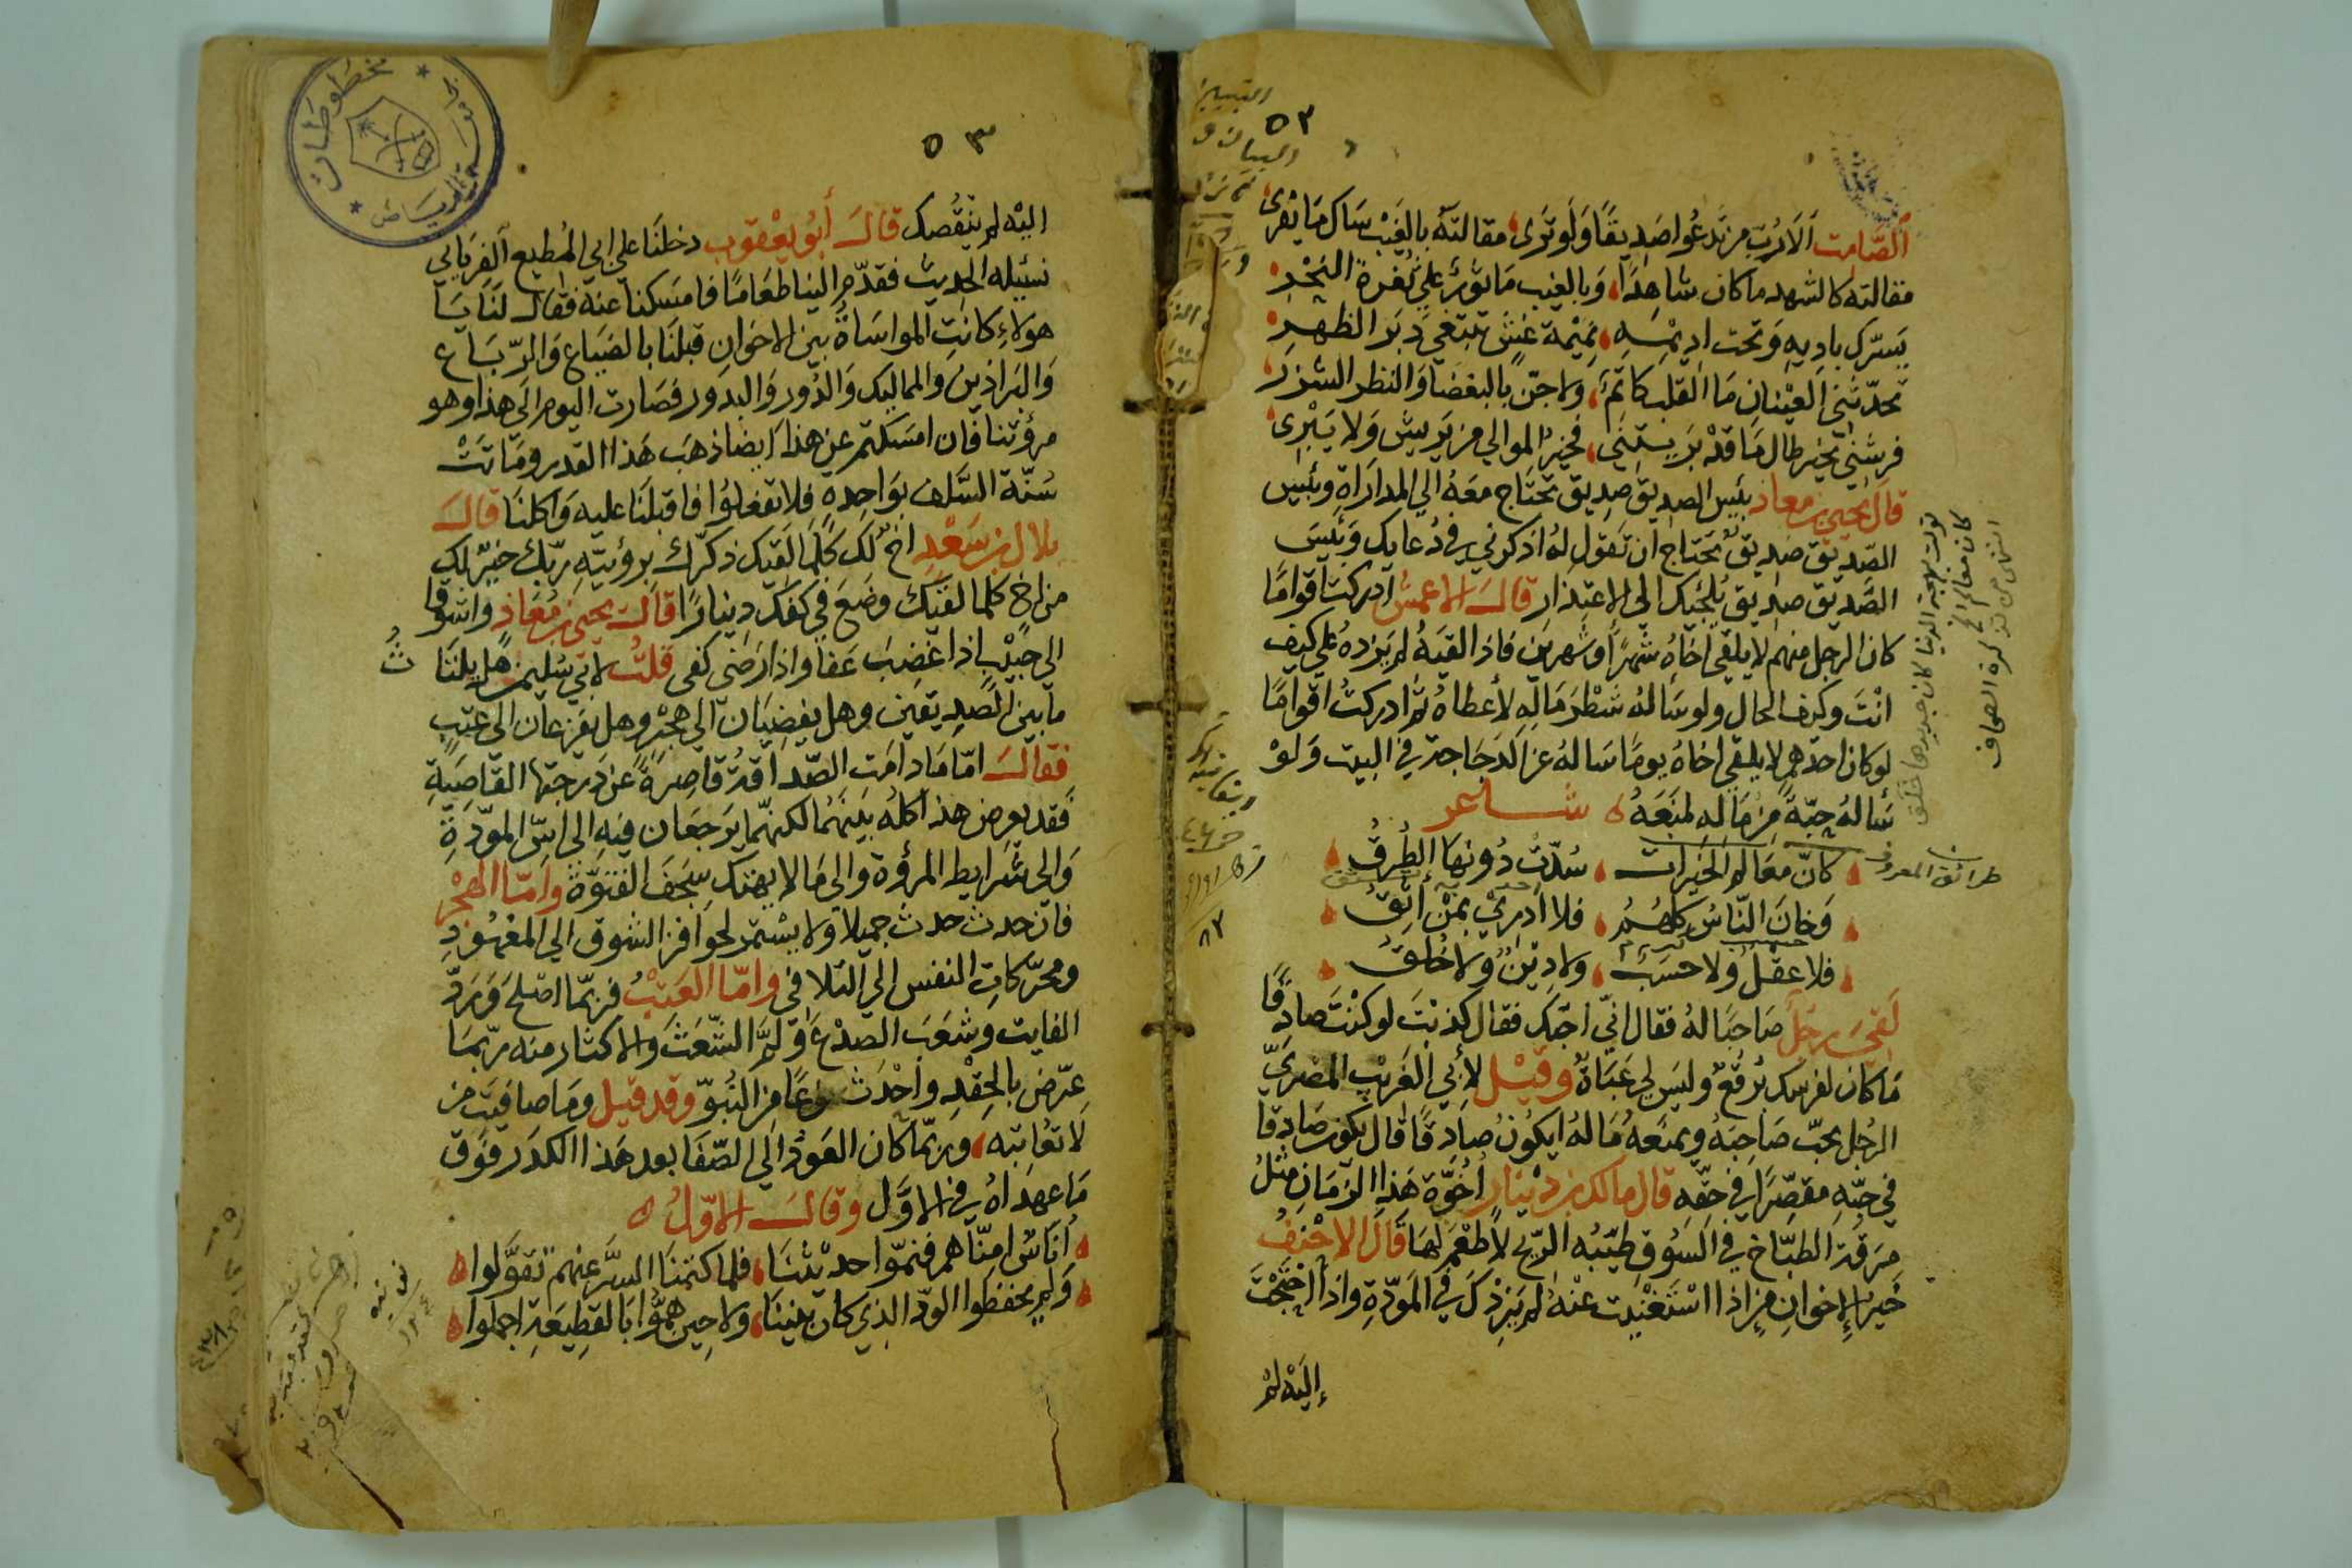 ٥٢
الصَّامت ألَا رُبّ من تدعُوا صَديقًا وَلَو تَرَى مقالتَهُ بالغَيْب سَاك مَا يَفرى
مقالته كالشهد ما كان شاهِدًا وَبالغيب مَاثورٌ على ثغرة النَّحْرِ
يَسرّك بادِيهِ وَتحت ادِيْمِهِ نَمِيْمة غشٍّ تبتغي دَبَر الظهرِ
تحدّثني العَيْنانِ مَا القلبُ كاتمٌ ولا جنّ بالبغضا وَالنظر الشزرِ
فرشني بخير طال مَا قدْ بَرَيتني فخيرُ الموالي من يَريش وَلا يَبْرِى
قال يحيى بن معاذ بئس الصديق صديق تحتاج معَهُ الى المدارَاةِ وبئيس
الصّديق صَديق تحتَاج ان تقول لهُ اذكرني في دُعايك وَبئيسَ
الصَّديق صديق يُلجئك الى الاعتِذارِ قالَ الاعمش ادركت اقوامًا
كان الرجل منهم لا يلقى اخاهُ شهرًا او شهرين فاذا لقيَهُ لم يَزدهُ على كيف
انْتَ وكيف الحال ولو سَالهُ شطْرَ مَالِهِ لأعطاهُ ثم ادركتُ اقوامًا
لو كان احدهم لا يلقى اخاهُ يومًا سَالهُ عن الدَجَاجة في البيت وَلوْ
سَالهُ حبّةً مِنْ مَالهِ لمنَعَهُ شاعر
كانّ مَعَالم الخيرات سُدّتْ دُونهَا الطُرقُ
وَخانَ النّاسُ كلهُمُ فلا ادرِيْ بمَنْ اثِقُ
فلا عقلٌ ولا حسَبٌ ولا دِينٌ ولا خُلقُ
لَقِيَ رجلٌ صَاحبًا لهُ فقال انّي احبّك فقال كذبْتَ لو كنْتَ صَادِقًا
مَا كان لفرسك بُرقعٌ وليسَ لي عَبَاةٌ وقيْل لأبي الغَريْب المصْريّ
الرجُل يحبّ صَاحِبَهُ ويمنعَهُ مَالهُ ايكُونُ صادِقًا قال يكون صَادِقا
في حبّهِ مقصّرًا في حقّهِ قال مالك بن دِيْنار أخوّة هَذا الزمَانِ مثلُ
مرَقَة الطبّاخ في السُوقِ طيّبُه الرّيح لا طعْمَ لهَا قَالَ الاحْنفُ
خَيرُ الإخوانِ مَن اذا اسْتَغْنيت عنْهُ لم يَزِدْكَ في المَودّةِ واذا احتجْتَ
إليْه لمْ
طرائق المعروف
٥٣
اليْه لم ينقُصك قالَ أبُو يعْقوب دخلنَا على ابي المُطيع الفريابي
نسئله الحديث فقدّم الينا طعَامًا فامسَكنا عنه فقال لنَا يَا
هولاءِ كانتِ المواسَاةُ بين الاخوانِ قبلنَا بالضيَاعِ وَالرّبَاع
وَالبَراذين والمماليك وَالدُور وَالبدور فصَارت اليوم الى هذا وهو
مرؤتنا فان امسَكتم عن هذا ايضا ذهَب هَذا القدر ومَاتتْ
سُنّة السَّلف بوَاحِدةٍ فلا تفعلوُا فاقبلنَا عليه وَاكلنَا قالَ
بلال بن سَعْدٍ اخٌ لك كلما لقيك ذكرّك برؤيتهِ ربّك خيرٌ لك
من اخٍ كلما لقيَك وضعَ في كفّك دينارًا قالَ يحيى بن مُعَاذ واشوقا
الى حبيْبٍ اذا غضِبَ عَفا واذا رَضى كفى قلتُ لابي سُليمن هل بلنَا
مَا بين الصَدِيقَين وهل يفضيَان الى هجْرٍ وهل يفزعان الى عتبٍ
فقالَ امّا مَا دامَت الصّداقةُ قاصِرةً عن دَرجتها القاصَيةِ
فقد يعرض هذا كلهُ بينَهُمَا لكنهّما يَرجعَان فيهِ الى اسّ المودّةِ
وَالى شرايط المرؤة والى مَا لا يهتك سِجَف الفتوّة وامّا الهجْر
فان حدث حدث جميلًا وَلا يسْتمر لحوافز الشوق الى المعْهُودِ
ومحرّكاتِ النفس الى التلافى وامّا العَتْبُ فربّما اصْلحَ وَرَدّ
الفايت وشعَبَ الصدْعَ وَلمَّ الشّعَثَ وَالاكثار منه ربّمَا
عرّض بالحِقْدِ وأحْدَثَ نوعًا من النُبوّ وقد قيل ومَا صافيَت من
لا تعُاتبه وَربّما كان العَودُ الى الصّفَا بعد هَذا الكدَر فوَق
مَا عهدَاهُ في الاوَّل وقالَ الاوّلُ
أناسٌ امنّاهم فنمّوا حديْثنَا فلما كتمنَا السّرَّ عنهم تقوَّلوا
وَلم يحفظوا الودّ الذي كان بيننَا ولا حِين همُّوا بالقطِيعَةِ اجملوا
مخطوطات